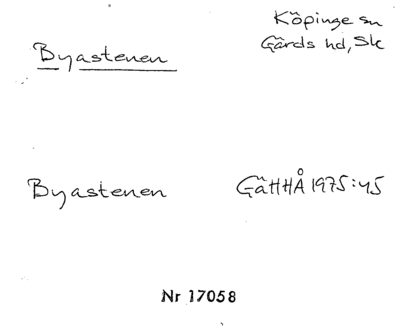 Byastenen
Köpinge sn
Gärds hd, Sk
Byastenen
GäHHÅ 1975:45
Nr 17058